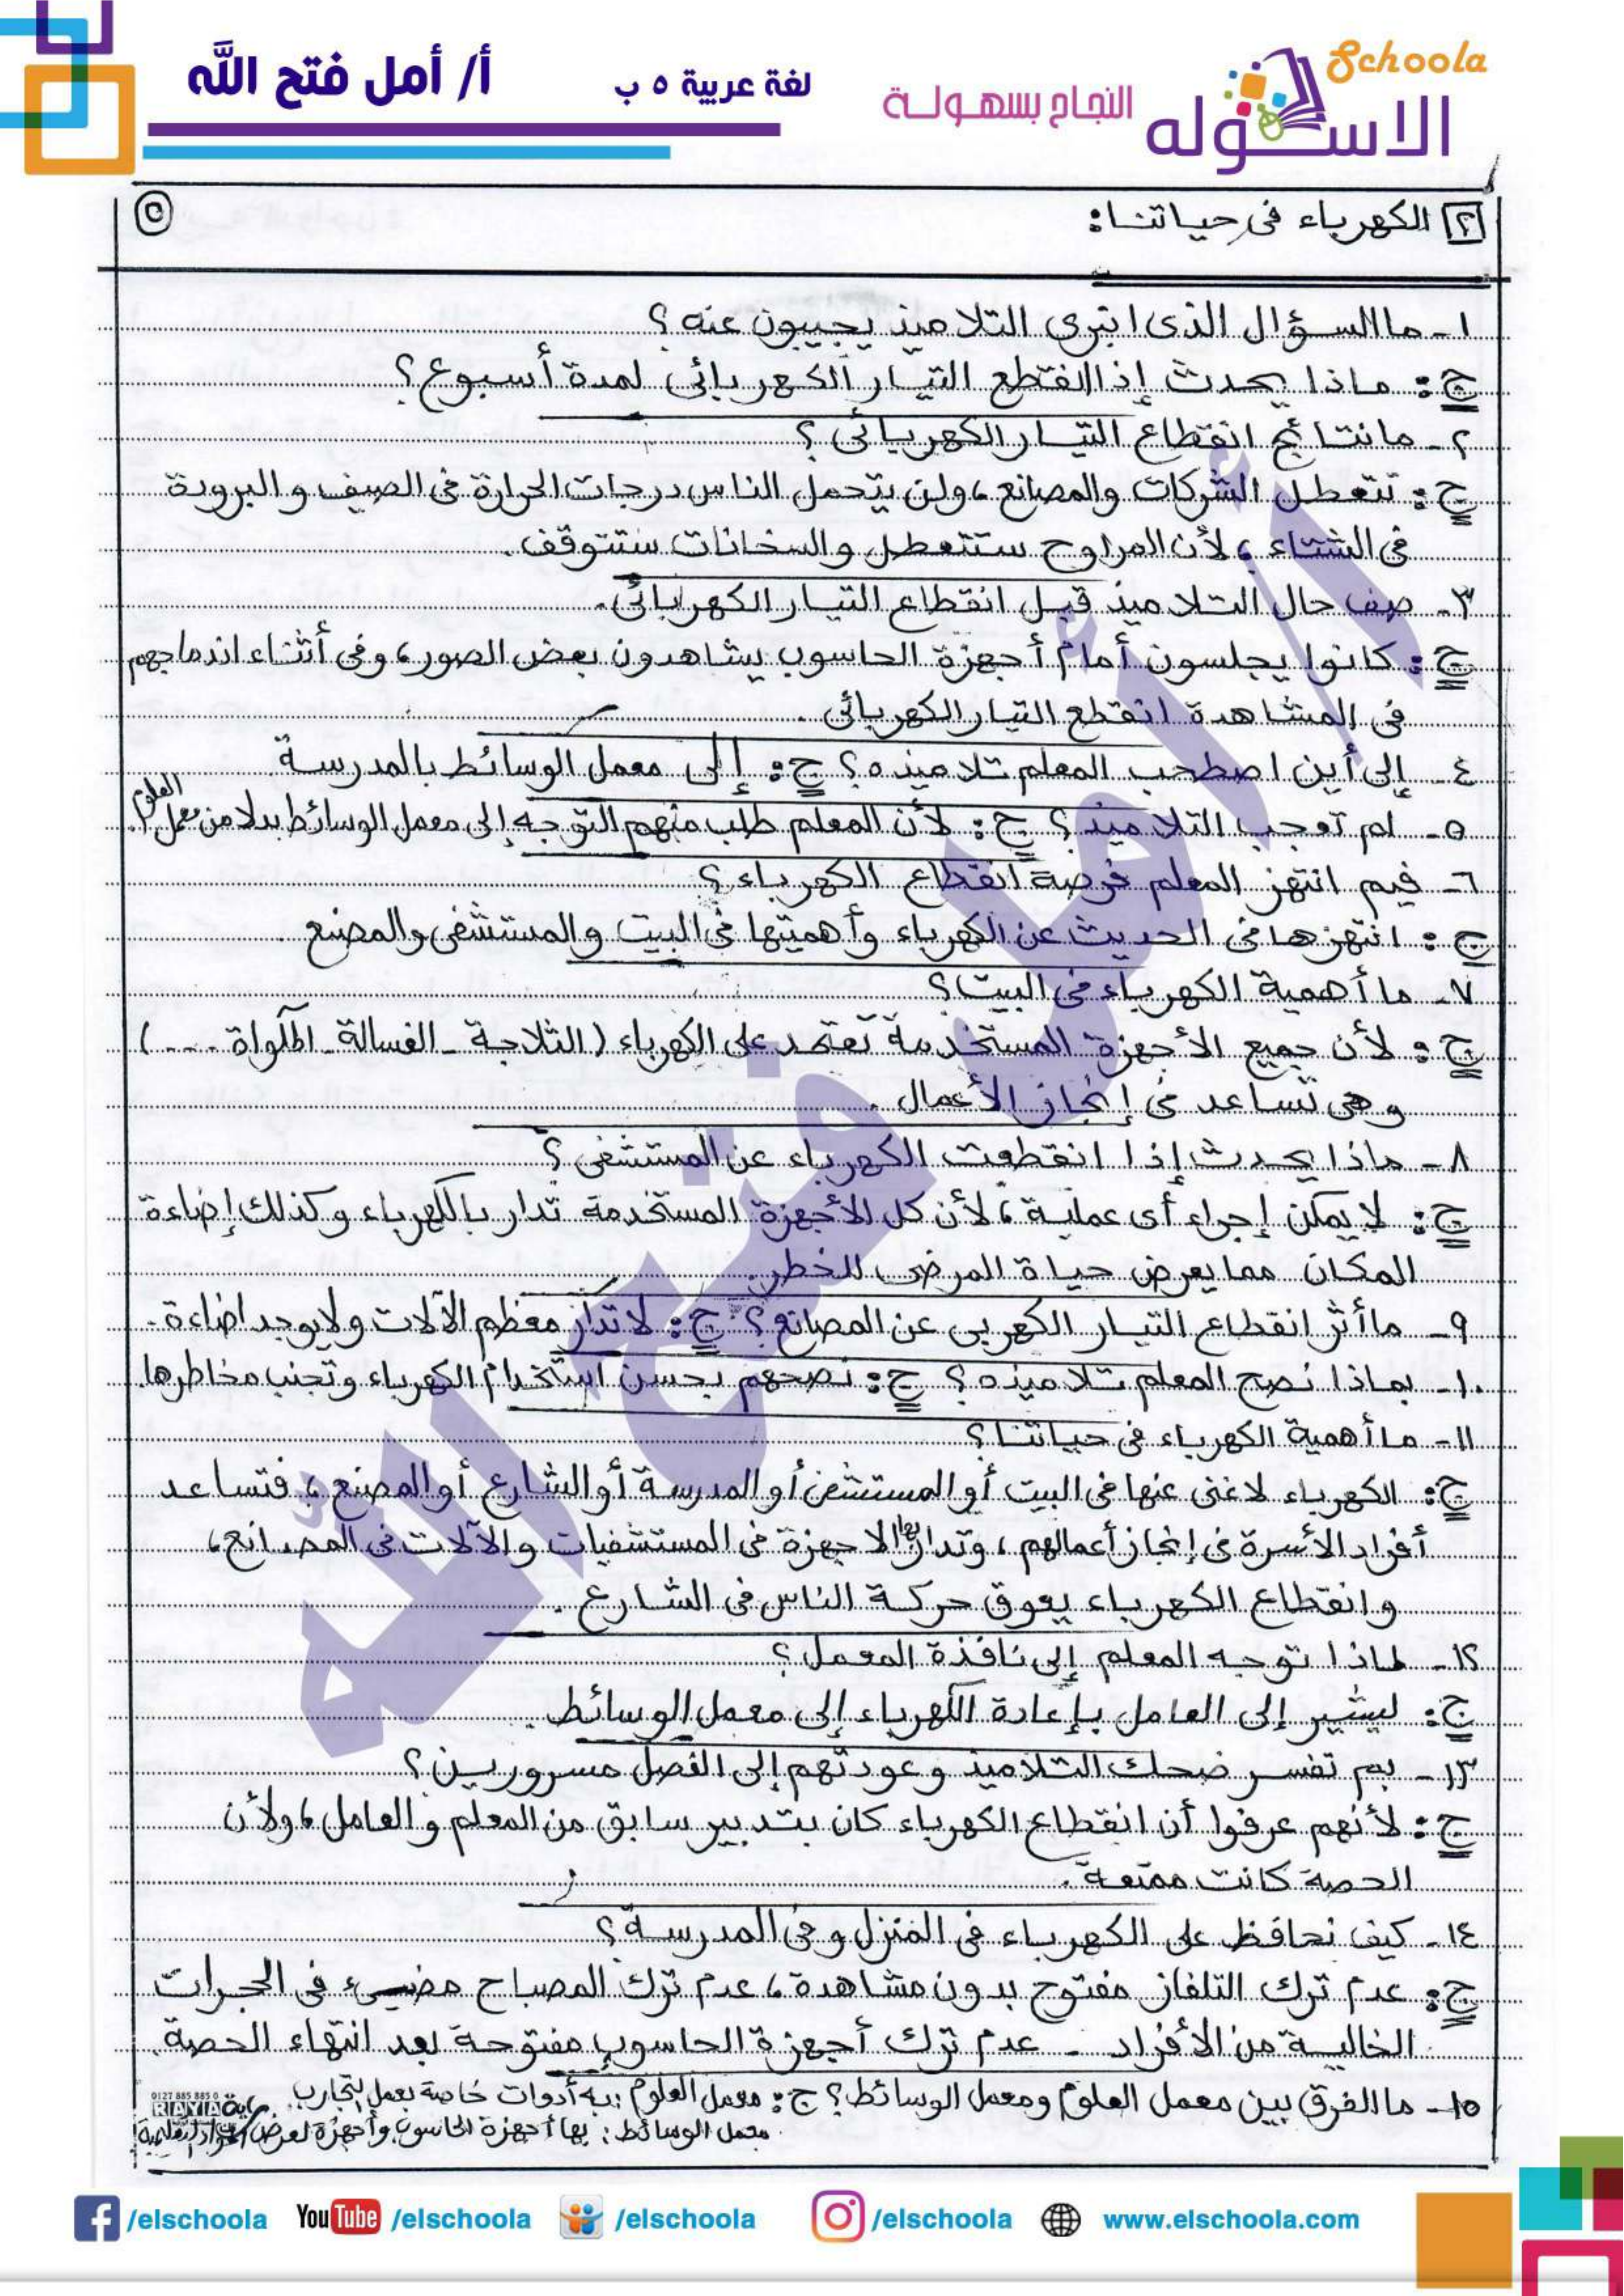 Schoola
الاسكوله
النجاح بسهولة
لغة عربية ٥ ب
أ/ أمل فتح الله
٢ الكهرباء فى حياتنا:
٥
١- ما السؤال الذى انبرى التلاميذ يجيبون عنه؟
ج: ماذا يحدث إذا انقطع التيار الكهربائى لمدة أسبوع؟
٢- ما نتائج انقطاع التيار الكهربائى؟
ج: تتعطل الشركات والمصانع، ولن يتحمل الناس درجات الحرارة فى الصيف و البرودة
فى الشتاء، لأن المراوح ستتعطل والسخانات ستتوقف.
٣- صف حال التلاميذ قبل انقطاع التيار الكهربائى.
ج: كانوا يجلسون أمام أجهزة الحاسوب يشاهدون بعض الصور، وفى أثناء اندماجهم
فى المشاهدة انقطع التيار الكهربائى.
٤- إلى أين اصطحب المعلم تلاميذه؟ ج: إلى معمل الوسائط بالمدرسة
٥- لم تعجب التلاميذ؟ ج: لأن المعلم طلب منهم التوجه إلى معمل الوسائط بدلا من معمل العلوم.
٦- فيم انتهز المعلم فرصة انقطاع الكهرباء؟
ج: انتهزها فى الحديث عن الكهرباء وأهميتها فى البيت والمستشفى والمصنع.
٧- ما أهمية الكهرباء فى البيت؟
ج: لأن جميع الأجهزة المستخدمة تعتمد على الكهرباء (الثلاجة - الغسالة - المكواة ....)
وهى تساعد فى إنجاز الأعمال.
٨- ماذا يحدث إذا انقطعت الكهرباء عن المستشفى؟
ج: لا يمكن إجراء أى عملية، لأن كل الأجهزة المستخدمة تدار بالكهرباء وكذلك إضاءة
المكان مما يعرض حياة المرضى للخطر.
٩- ما أثر انقطاع التيار الكهربى عن المصانع؟ ج: لا تدار معظم الآلات ولا يوجد اضاءة.
١٠- بماذا نصح المعلم تلاميذه؟ ج: نصحهم بحسن استخدام الكهرباء وتجنب مخاطرها.
١١- ما أهمية الكهرباء فى حياتنا؟
ج: الكهرباء لا غنى عنها فى البيت أو المستشفى أو المدرسة أو الشارع أو المصنع، فتساعد
أفراد الأسرة فى إنجاز أعمالهم، وتدار بها الاجهزة فى المستشفيات والآلات فى المصانع،
وانقطاع الكهرباء يعوق حركة الناس فى الشارع.
١٢- لماذا توجه المعلم إلى نافذة المعمل؟
ج: ليشير إلى العامل بإعادة الكهرباء إلى معمل الوسائط.
١٣- بم تفسر ضحك التلاميذ وعودتهم إلى الفصل مسرورين؟
ج: لأنهم عرفوا أن انقطاع الكهرباء كان بتدبير سابق من المعلم والعامل، ولأن
الحصة كانت ممتعة.
١٤- كيف نحافظ على الكهرباء فى المنزل وفى المدرسة؟
ج: عدم ترك التلفاز مفتوح بدون مشاهدة، عدم ترك المصباح مضىء فى الحجرات
الخالية من الأفراد - عدم ترك أجهزة الحاسوب مفتوحة بعد انتهاء الحصة.
١٥- ما الفرق بين معمل العلوم ومعمل الوسائط؟ ج: معمل العلوم: به أدوات خاصة بعمل التجارب.
معمل الوسائط: بها أجهزة الحاسوب وأجهزة لعرض المواد التعليمية
0127 885 885 0
RAYIA
أ/ أمل فتح الله
/elschoola
YouTube /elschoola
/elschoola
/elschoola
www.elschoola.com